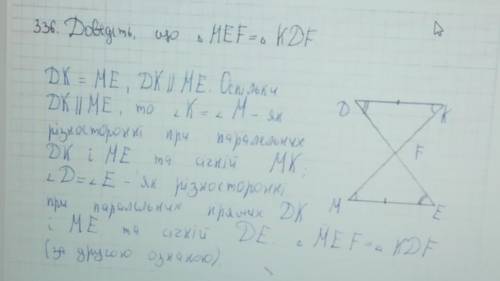 336. Доведіть, що △ MEF = △ KDF
DK = ME, DK || ME. Оскільки
DK || ME, то ∠K = ∠M - як
різносторонні при паралельних
DK і ME та січній MK;
∠D = ∠E - як різносторонні
при паралельних прямих DK
і ME та січній DE. △ MEF = △ KDF
(за другою ознакою).
D K
F
M E